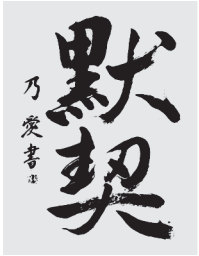 默契
乃愛書